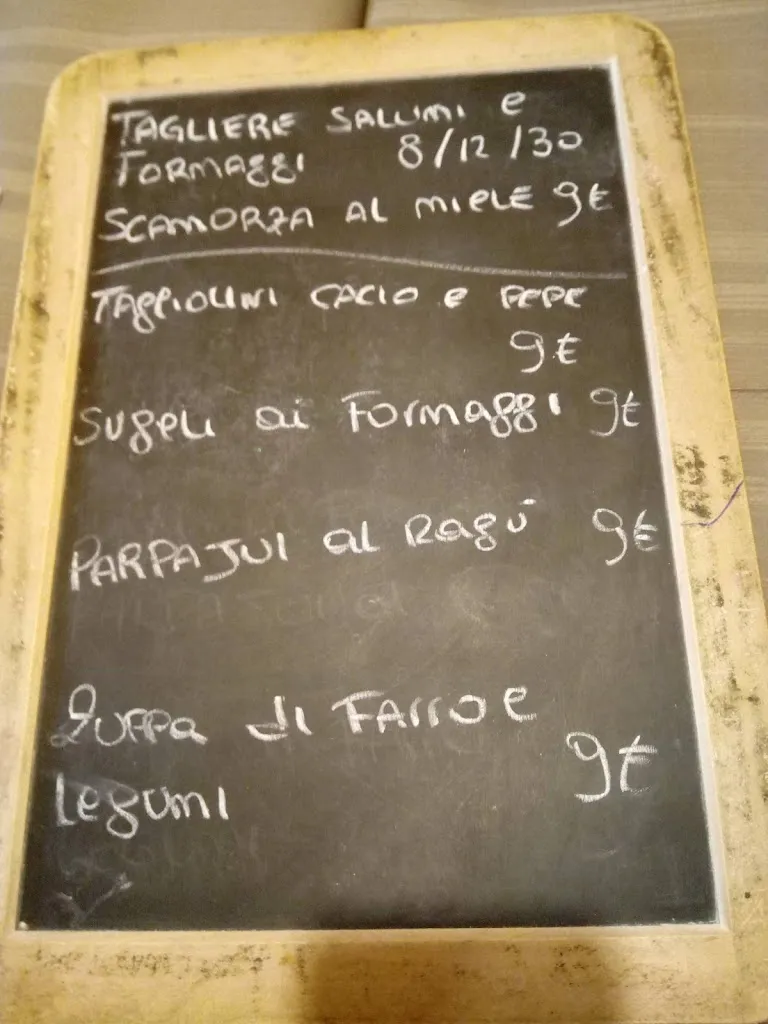 TAGLIERE SALUMI e
FORMAGGI 8/12/30
SCAMORZA AL MIELE 9€
TAGLIOLINI CACIO e PEPE
9€
SUGELI ai FORMAGGI 9€
PARPAJUI al RAGÙ 9€
ZUPPA di FARRO e
LEGUMI 9€